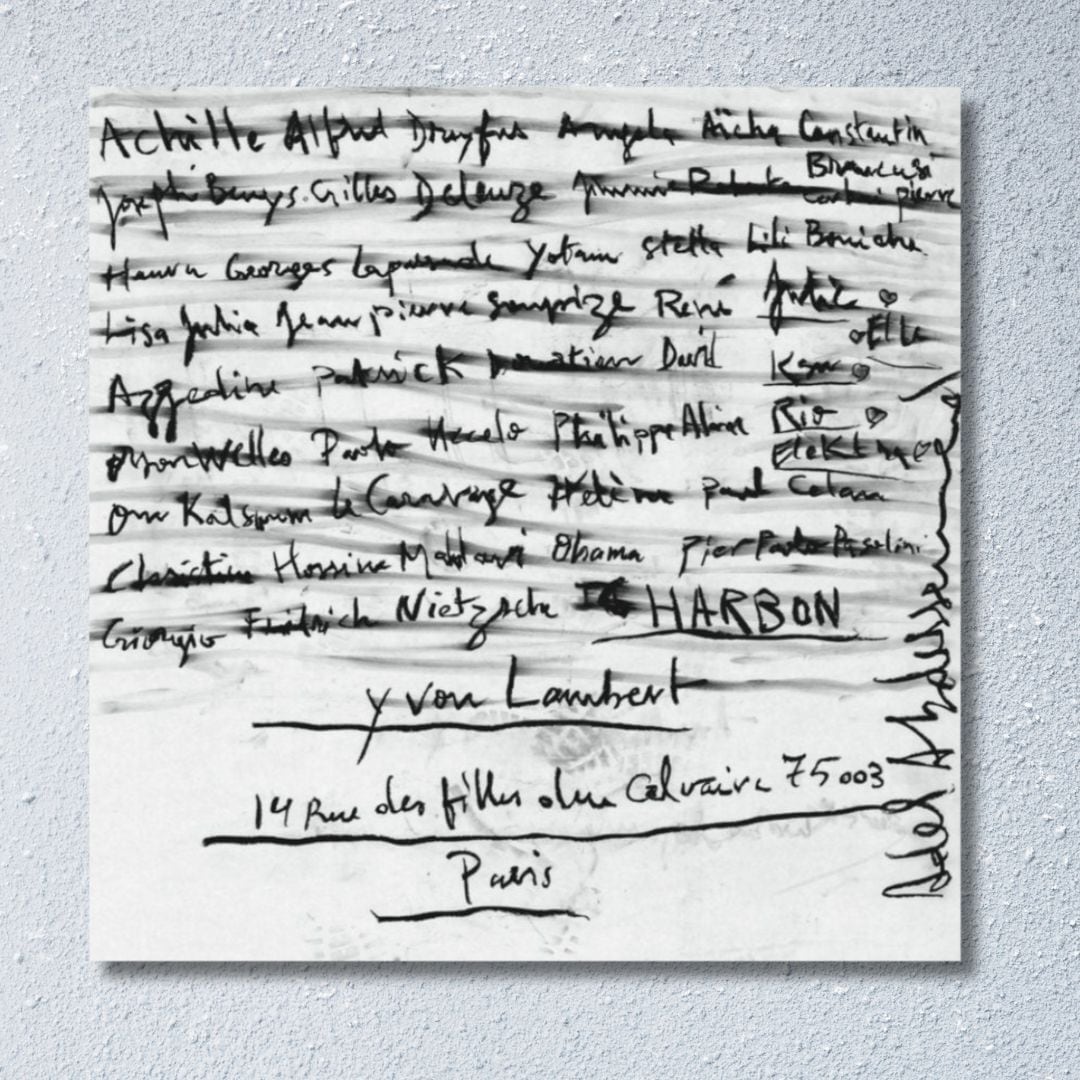 Achille Alfred Dreyfus Angela Aïcha Constantin
Brancusi
Joseph Beuys. Gilles Deleuze Jimmie
pierre
Georges Lapassade Yotam stella Lili Boniche
Lisa Julia Jean pierre René
♡
Elle
Azzedine Patrick David
♡
orson Welles Paolo Uccelo Philippe Alain Rio ♡
Elektra ♡♡
Om Kalsoum le Caravage Hélène paul Celan
Christian Hossine Mahdavi Obama pier Paolo Pasolini
Giorgio Friedrich Nietzsche HARBON
yvon Lambert
14 Rue des filles du Calvaire 75003
Paris
Adel Abdessemed